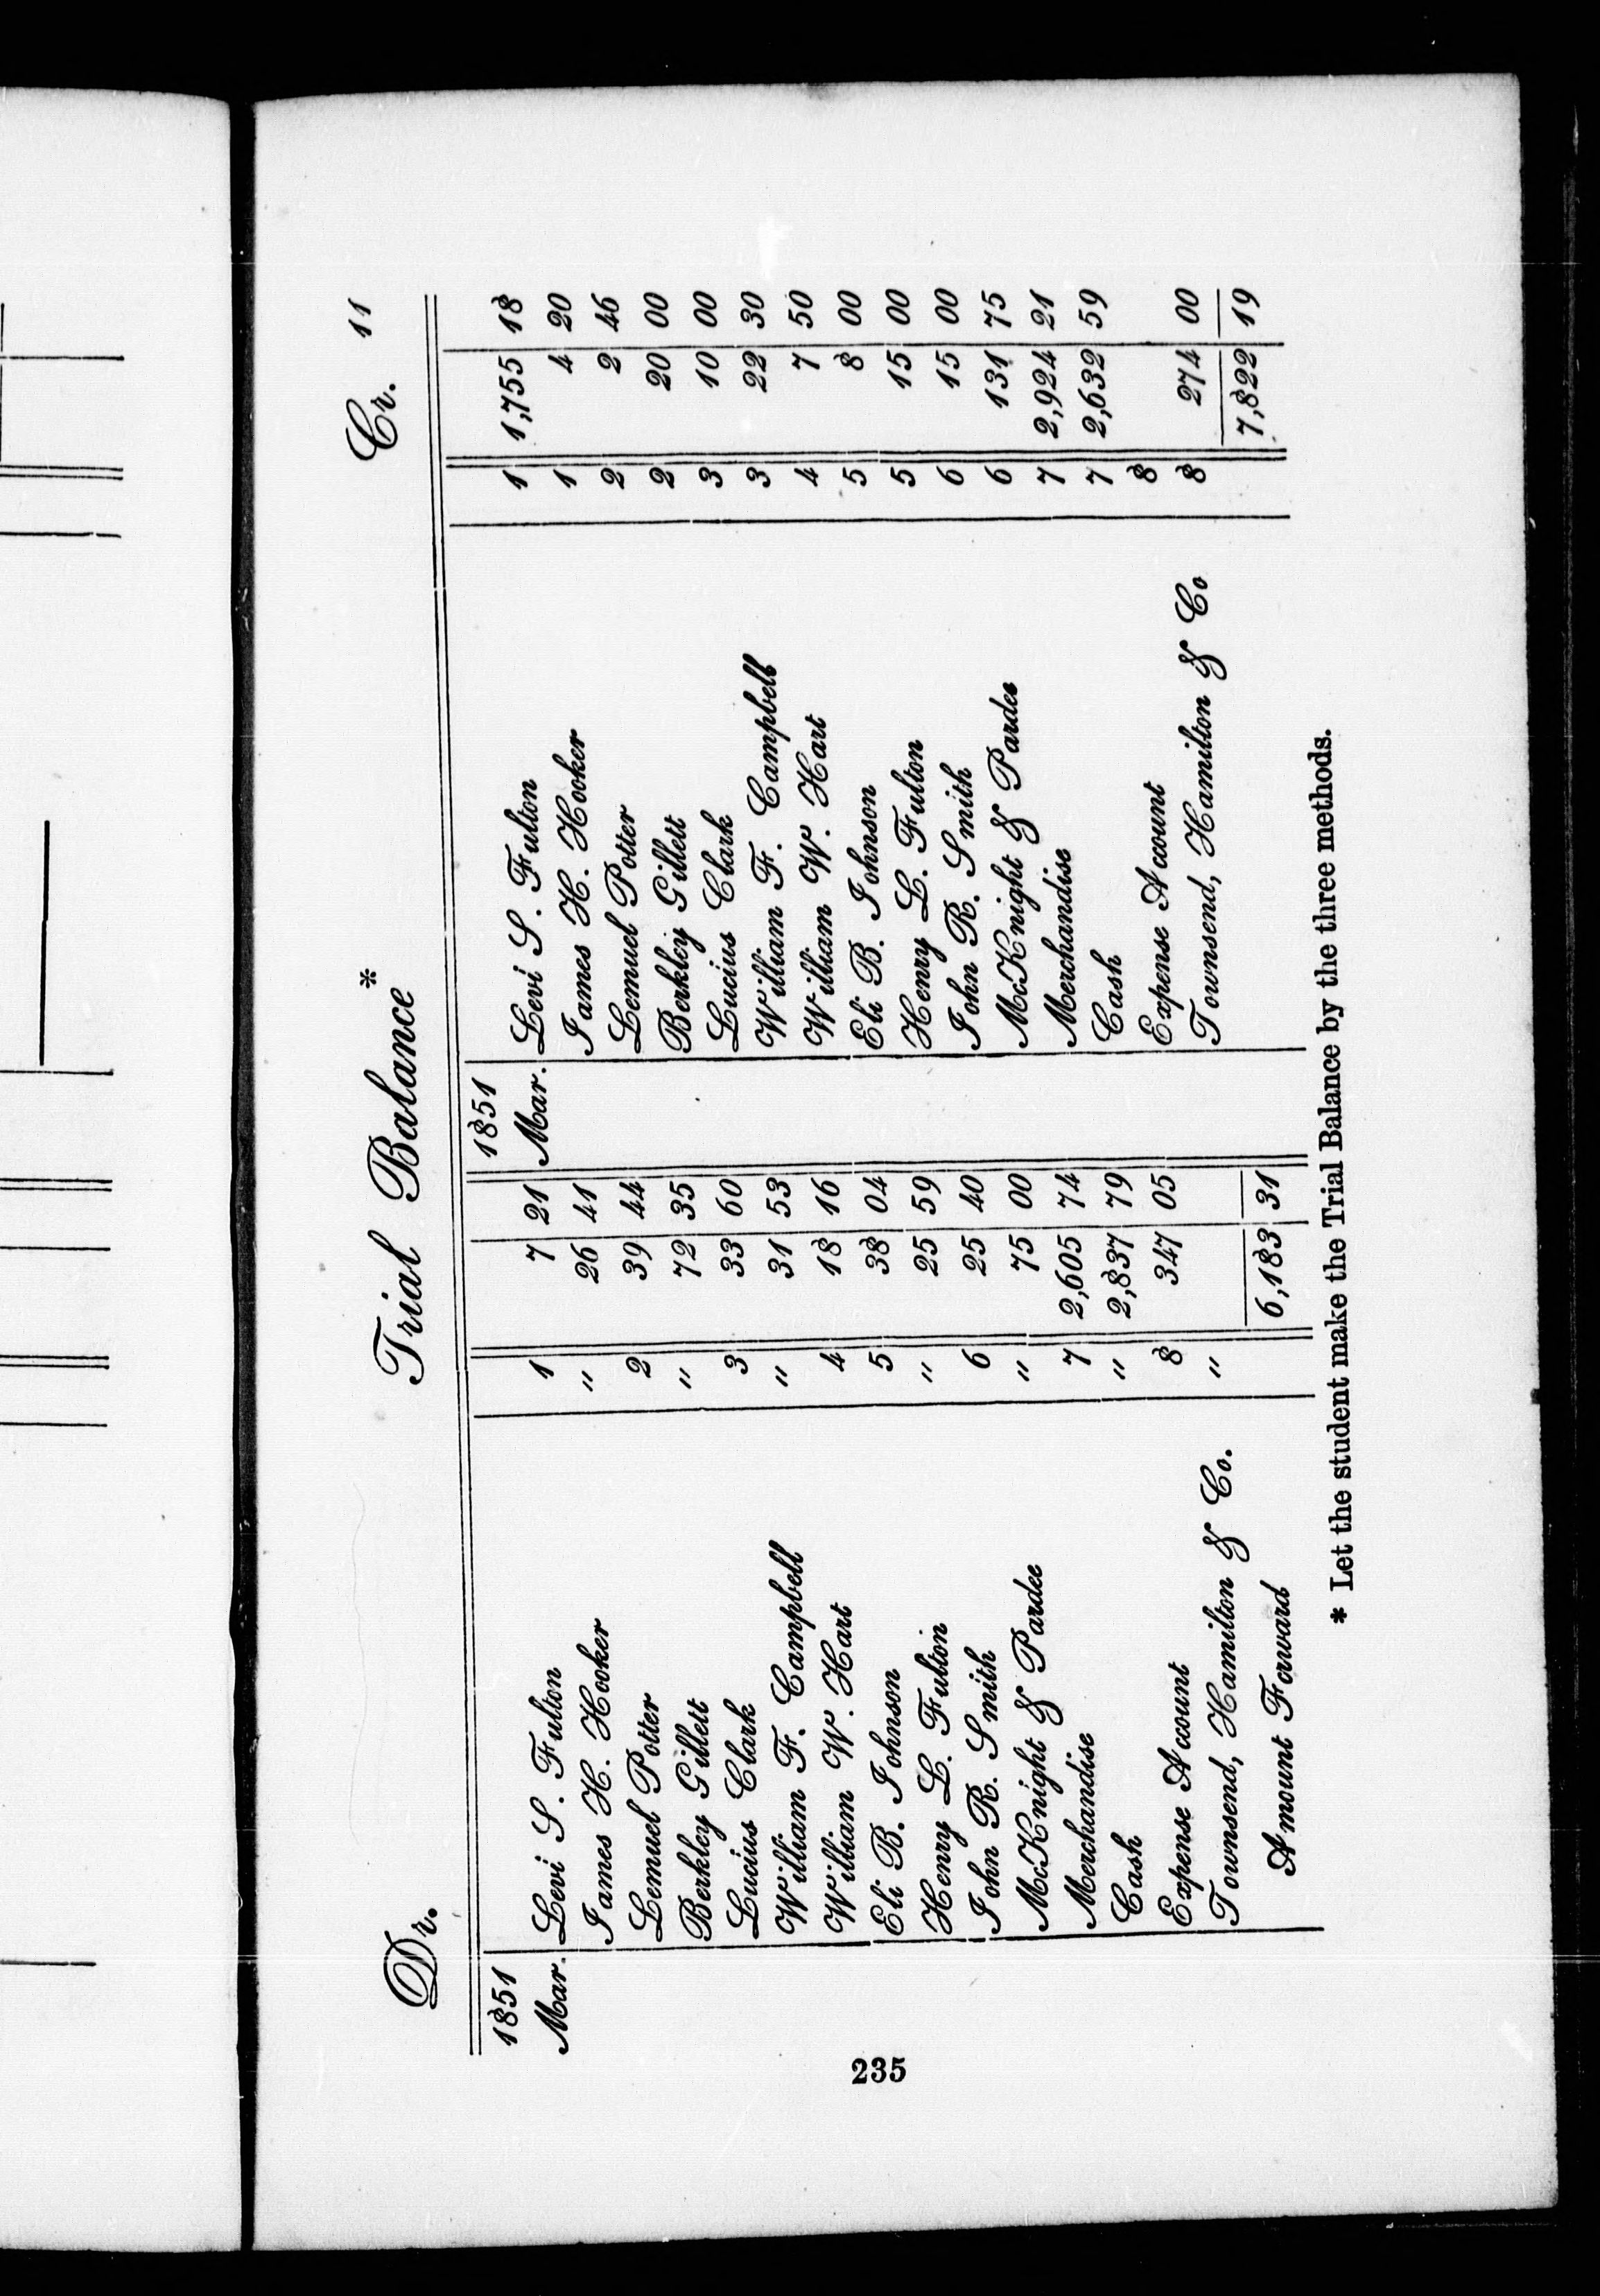 Dr. Trial Balance* Cr. 11
1851 1851
Mar. Levi S. Fulton 1 7 21 Mar. Levi S. Fulton 1 1,755 18
James H. Hooker " 26 41 James H. Hooker 1 4 20
Lemuel Potter 2 39 44 Lemuel Potter 2 2 46
Berkley Gillett " 72 35 Berkley Gillett 2 20 00
Lucius Clark 3 33 60 Lucius Clark 3 10 00
William F. Campbell " 31 53 William F. Campbell 3 22 30
William W. Hart 4 18 16 William W. Hart 4 7 50
Eli B. Johnson 5 38 04 Eli B. Johnson 5 8 00
Henry L. Fulton " 25 59 Henry L. Fulton 5 15 00
John R. Smith 6 25 40 John R. Smith 6 15 00
McKnight & Pardee " 75 00 McKnight & Pardee 6 131 75
Merchandise 7 2,605 74 Merchandise 7 2,924 21
Cash " 2,837 79 Cash 7 2,632 59
Expense Account 8 347 05 Expense Account 8
Townsend, Hamilton & Co. " Townsend, Hamilton & Co 8 274 00
Amount Forward 6,183 31 7,822 19
* Let the student make the Trial Balance by the three methods.
235